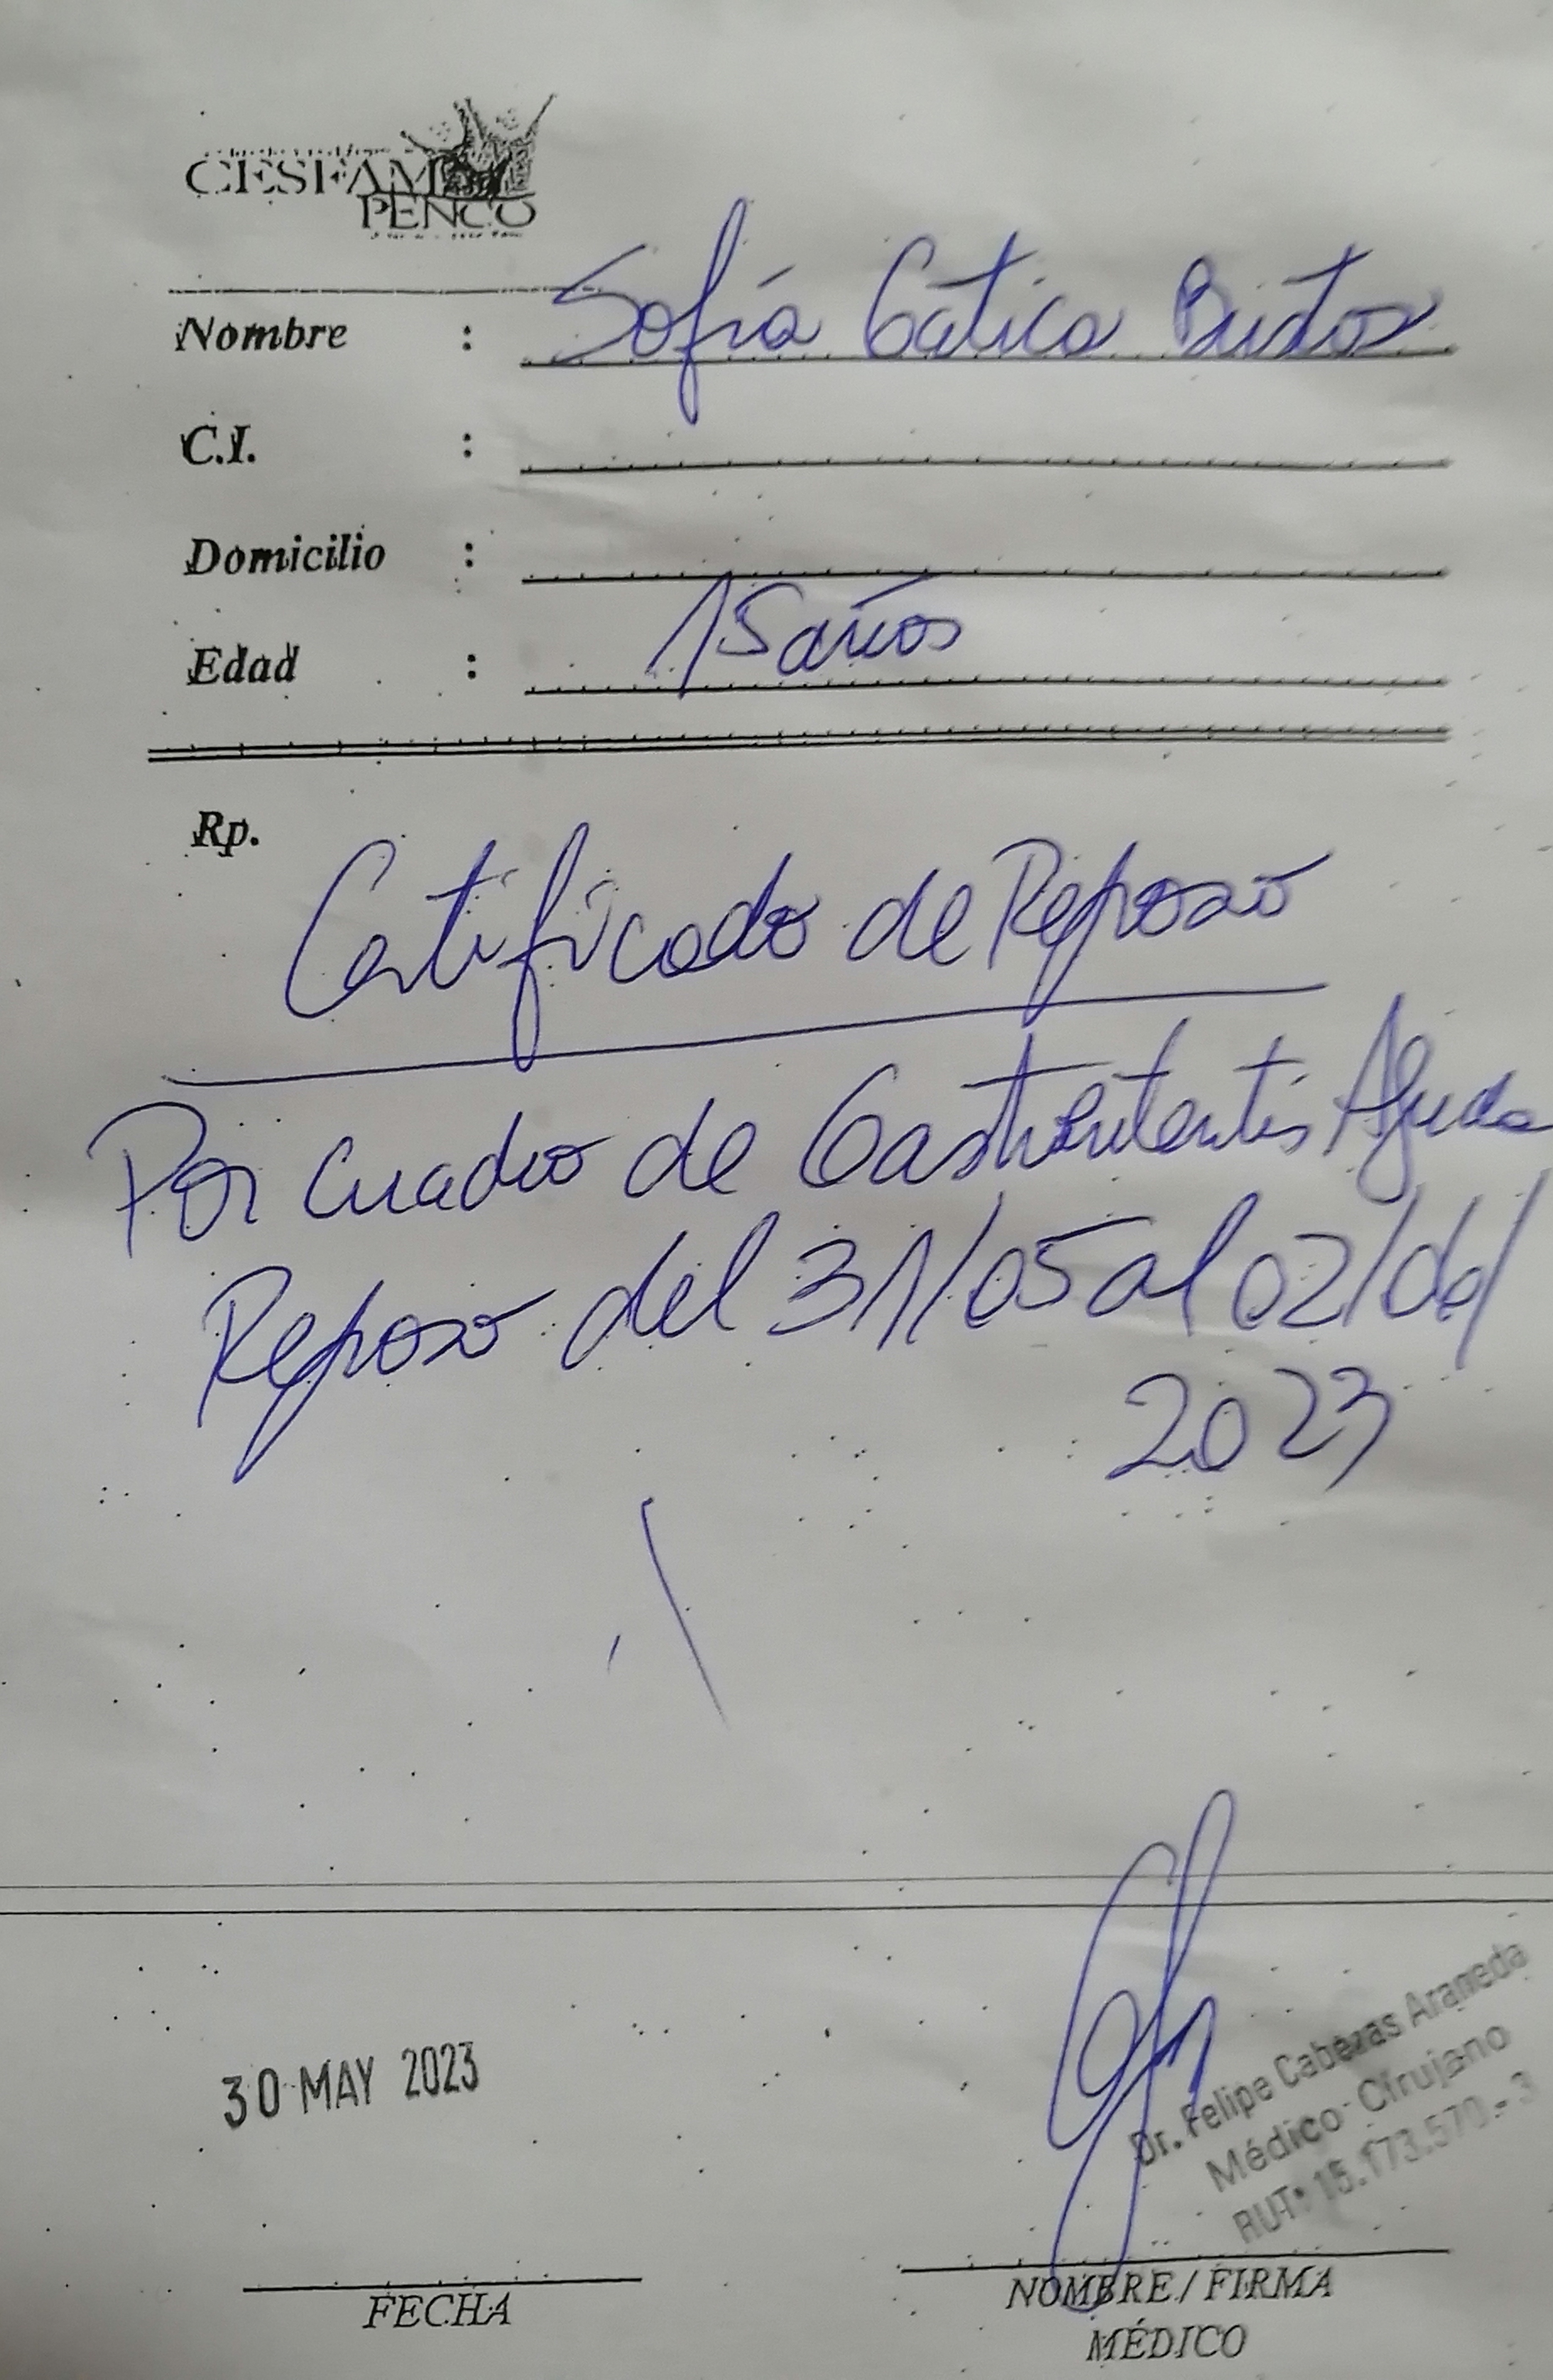 CESFAM
PENCO
Nombre : Sofía Gatica Bustos
C.I. :
Domicilio :
Edad : 15 años
Rp.
Certificado de Reposo
Por cuadro de Aguda
Reposo del 31/05 al 02/06/
2023
30 MAY 2023
Dr. Felipe Cabezas Araneda
Médico Cirujano
RUT: 15.173.570-3
FECHA
NOMBRE / FIRMA
MÉDICO